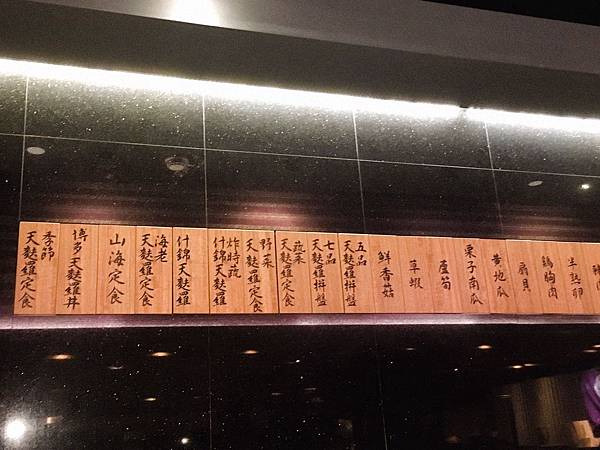 季節
天麩羅定食
博多天麩羅丼
山海定食
海老
天麩羅定食
什錦天麩羅
炸時蔬
什錦天麩羅
野菜
天麩羅定食
蔬菜
天麩羅定食
七品
天麩羅拼盤
五品
天麩羅拼盤
鮮香菇
草蝦
蘆筍
栗子南瓜
黃地瓜
扇貝
鷄胸肉
半熟卵
豬肉